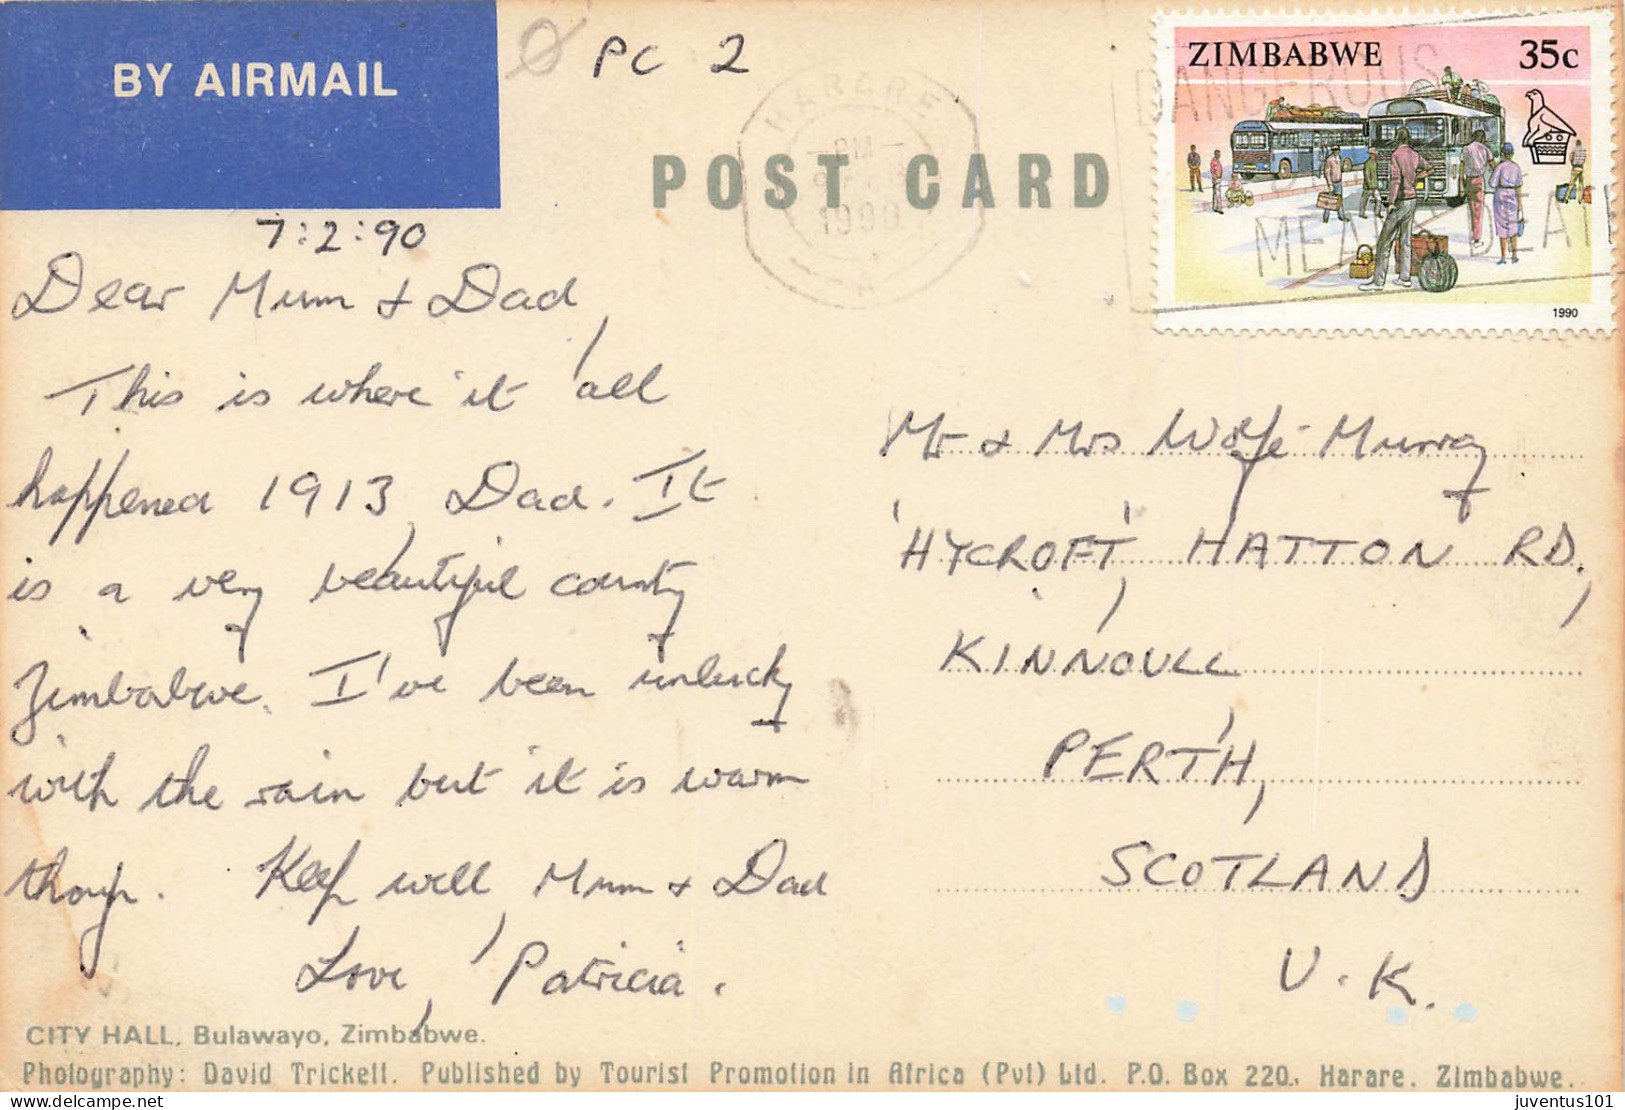 BY AIRMAIL
PC 2
HARARE
PM
1990
A
ZIMBABWE 35c
DANGEROUS
MEAN DEATH
1990
POST CARD
7:2:90
Dear Mum & Dad,
This is where it all
happened 1913, Dad. It
is a very beautiful county
Zimbabwe. I've been unlucky
with the rain but it is warm
though. Keep well, Mum & Dad
Love, Patricia.
Mr & Mrs Wolfe-Murray
'HYCROFT', HATTON RD.,
KINNOULL,
PERTH,
SCOTLAND
U.K.
CITY HALL, Bulawayo, Zimbabwe.
Photography: David Trickett. Published by Tourist Promotion in Africa (Pvt) Ltd. P.O. Box 220, Harare. Zimbabwe.
juventus101